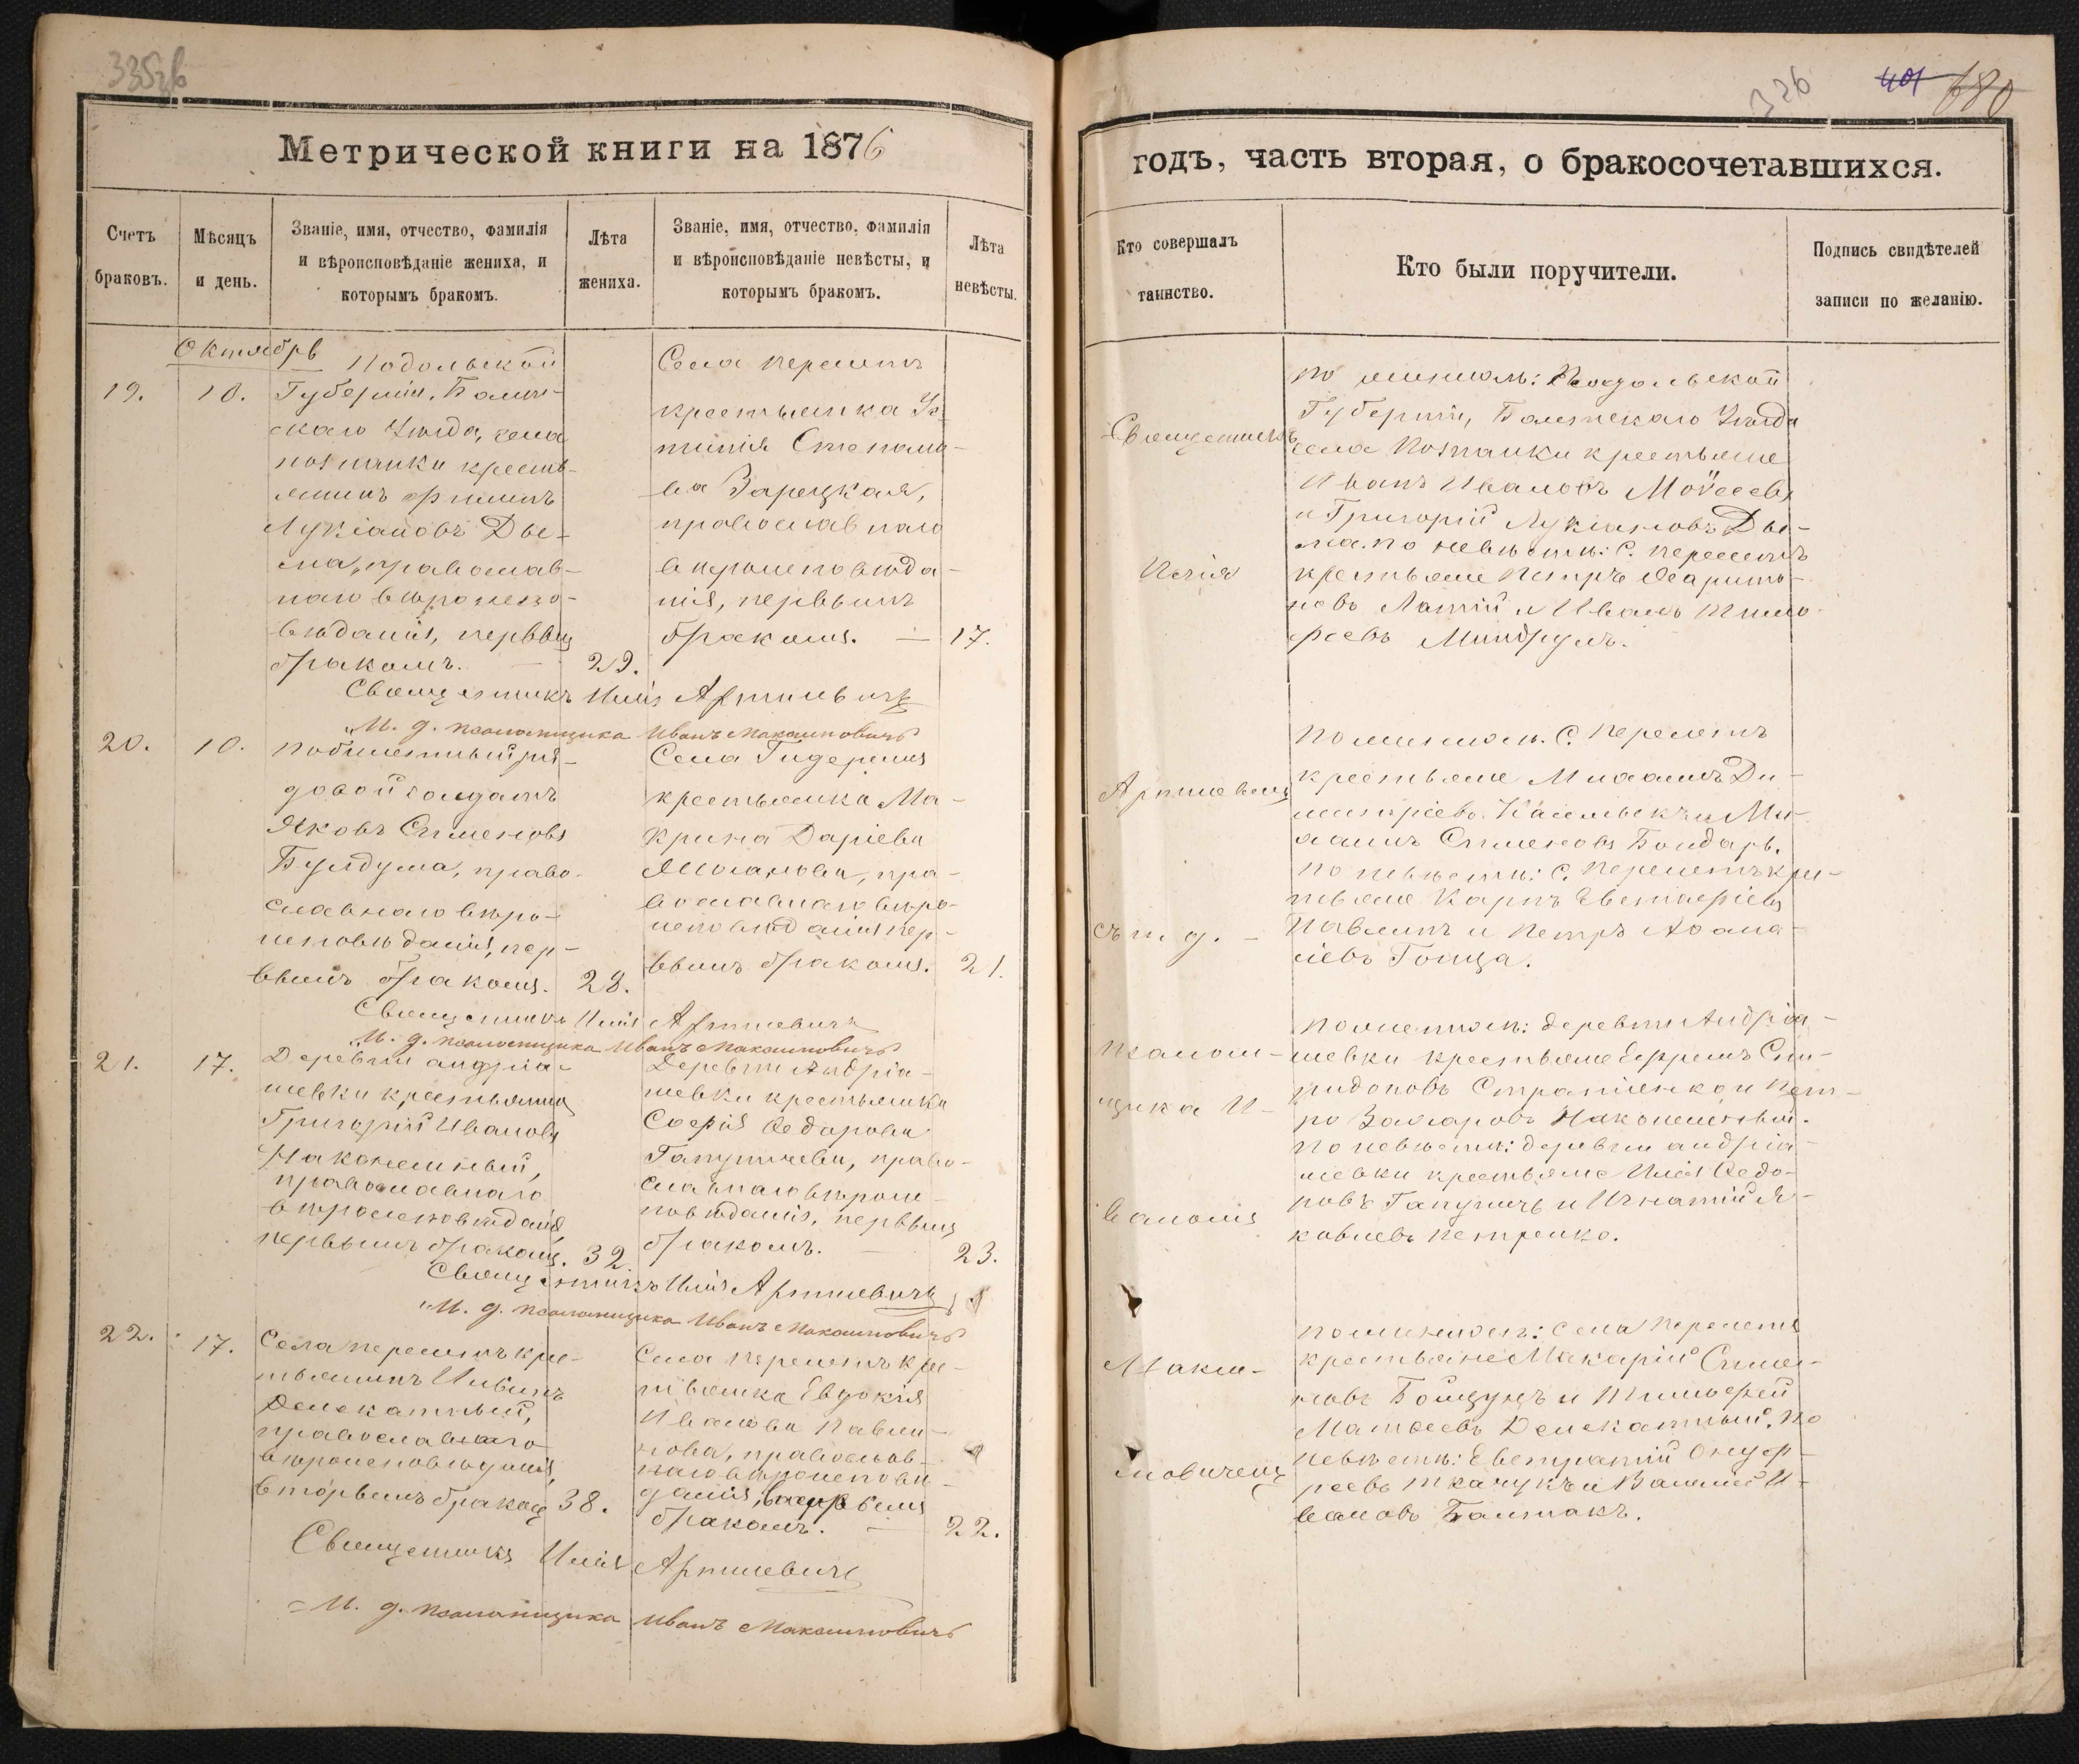 335зв
Метрической книги на 1876
Счетъ браковъ.
Мѣсяцъ и день.
Званіе, имя, отчество, фамилія
и вѣроисповѣданіе жениха, и
которымъ бракомъ.
Лѣта
жениха.
Званіе, имя, отчество, фамилія
и вѣроисповѣданіе невѣсты, и
которымъ бракомъ.
Лѣта
невѣсты.
Октябрь
19.
10.
Подольской
Губерніи, Балт-
скаго Уѣзда, села
Познанки кресть-
янинъ Филипъ
Лукіановъ Ды-
ма, православ-
наго вѣроиспо-
вѣданія, первымъ
бракомъ. —
29.
Села Перелетъ
крестьянка
Степано-
ва Зарецкая,
православнаго
вѣроисповѣда-
нія, первымъ
бракомъ. —
17.
Священникъ Илія Артиневичъ
И. д. псаломщика Иванъ Максимовичъ
20.
10.
ря-
довой солдатъ
Яковъ Сименовъ
Булдума, право-
славнаго вѣро-
исповѣданія, пер-
вымъ бракомъ.
28.
Села Гидеримъ
крестьянка Ма-
крина Даріева
пра-
вославнаго вѣро-
исповѣданія пер-
вымъ бракомъ.
21.
Священникъ Илія Артиневичъ
И. д. псаломщика Иванъ Максимовичъ
21.
17.
Деревни Андріа-
шевки крестьянинъ
Григорій Ивановъ
Наконешный,
православнаго
вѣроисповѣданія,
первымъ бракомъ.
32.
Деревни Андріа-
шевки крестьянка
Софія Ѳедорова
право-
славнаго вѣроис-
повѣданія, первымъ
бракомъ. —
23.
Священникъ Илія Артиневичъ
И. д. псаломщика Иванъ Максимовичъ
22.
17.
Села Перелетъ кре-
стьянинъ
Деликатный,
православнаго
вѣроисповѣданія,
вторымъ бракомъ
38.
Села Перелетъ кре-
стьянка Евдокія
Иванова Павли-
нова, православ-
наго вѣроисповѣ-
данія,
бракомъ. —
22.
Священникъ Илія Артиневичъ
И. д. псаломщика Иванъ Максимовичъ
326
401
680
годъ, часть вторая, о бракосочетавшихся.
Кто совершалъ
таинство.
Кто были поручители.
Подпись свидѣтелей
записи по желанію.
Священникъ
Илія
Артиневичъ
съ и. д. —
псалом-
щика И-
ваномъ
Макси-
мовичемъ
По женихѣ: Подольской
Губерніи, Балтскаго Уѣзда
села Познанки крестьяне
Иванъ Ивановъ Мойсеевъ
и Григорій Лукіановъ Ды-
ма. по невѣстѣ: С. Перелетъ
крестьяне Петръ Харито-
новъ и Иванъ Тимо-
феевъ Миндруль.
По женихѣ: С. Перелетъ
крестьяне Михаилъ Ди-
митріевъ и Ми-
хаилъ Сименовъ Бондарь.
по невѣстѣ: С. Перелетъ кре-
стьяне Карпъ Евстафіевъ
Павлинъ и Петръ Аѳана-
сіевъ Гонца.
По женихѣ: деревни Андріа-
шевки крестьяне Ефремъ Спи-
ридоновъ Стратіенко и Пет-
ро Захаровъ Наконешный.
по невѣстѣ: деревни Андріа-
шевки крестьяне Илія Ѳедо-
ровъ и Игнатій Я-
ковлевъ Петренко.
По женихѣ: села Перелетъ
крестьяне Макарій Симео-
новъ и Тимофей
Матѳеевъ Деликатный. по
невѣстѣ: Евстратій Онуф-
ріевъ Ткачукъ и Василій И-
вановъ Балтакъ.